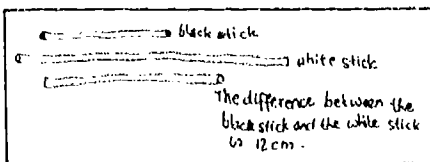 black stick
white stick
The difference between the
black stick and the white stick
is 12 cm.